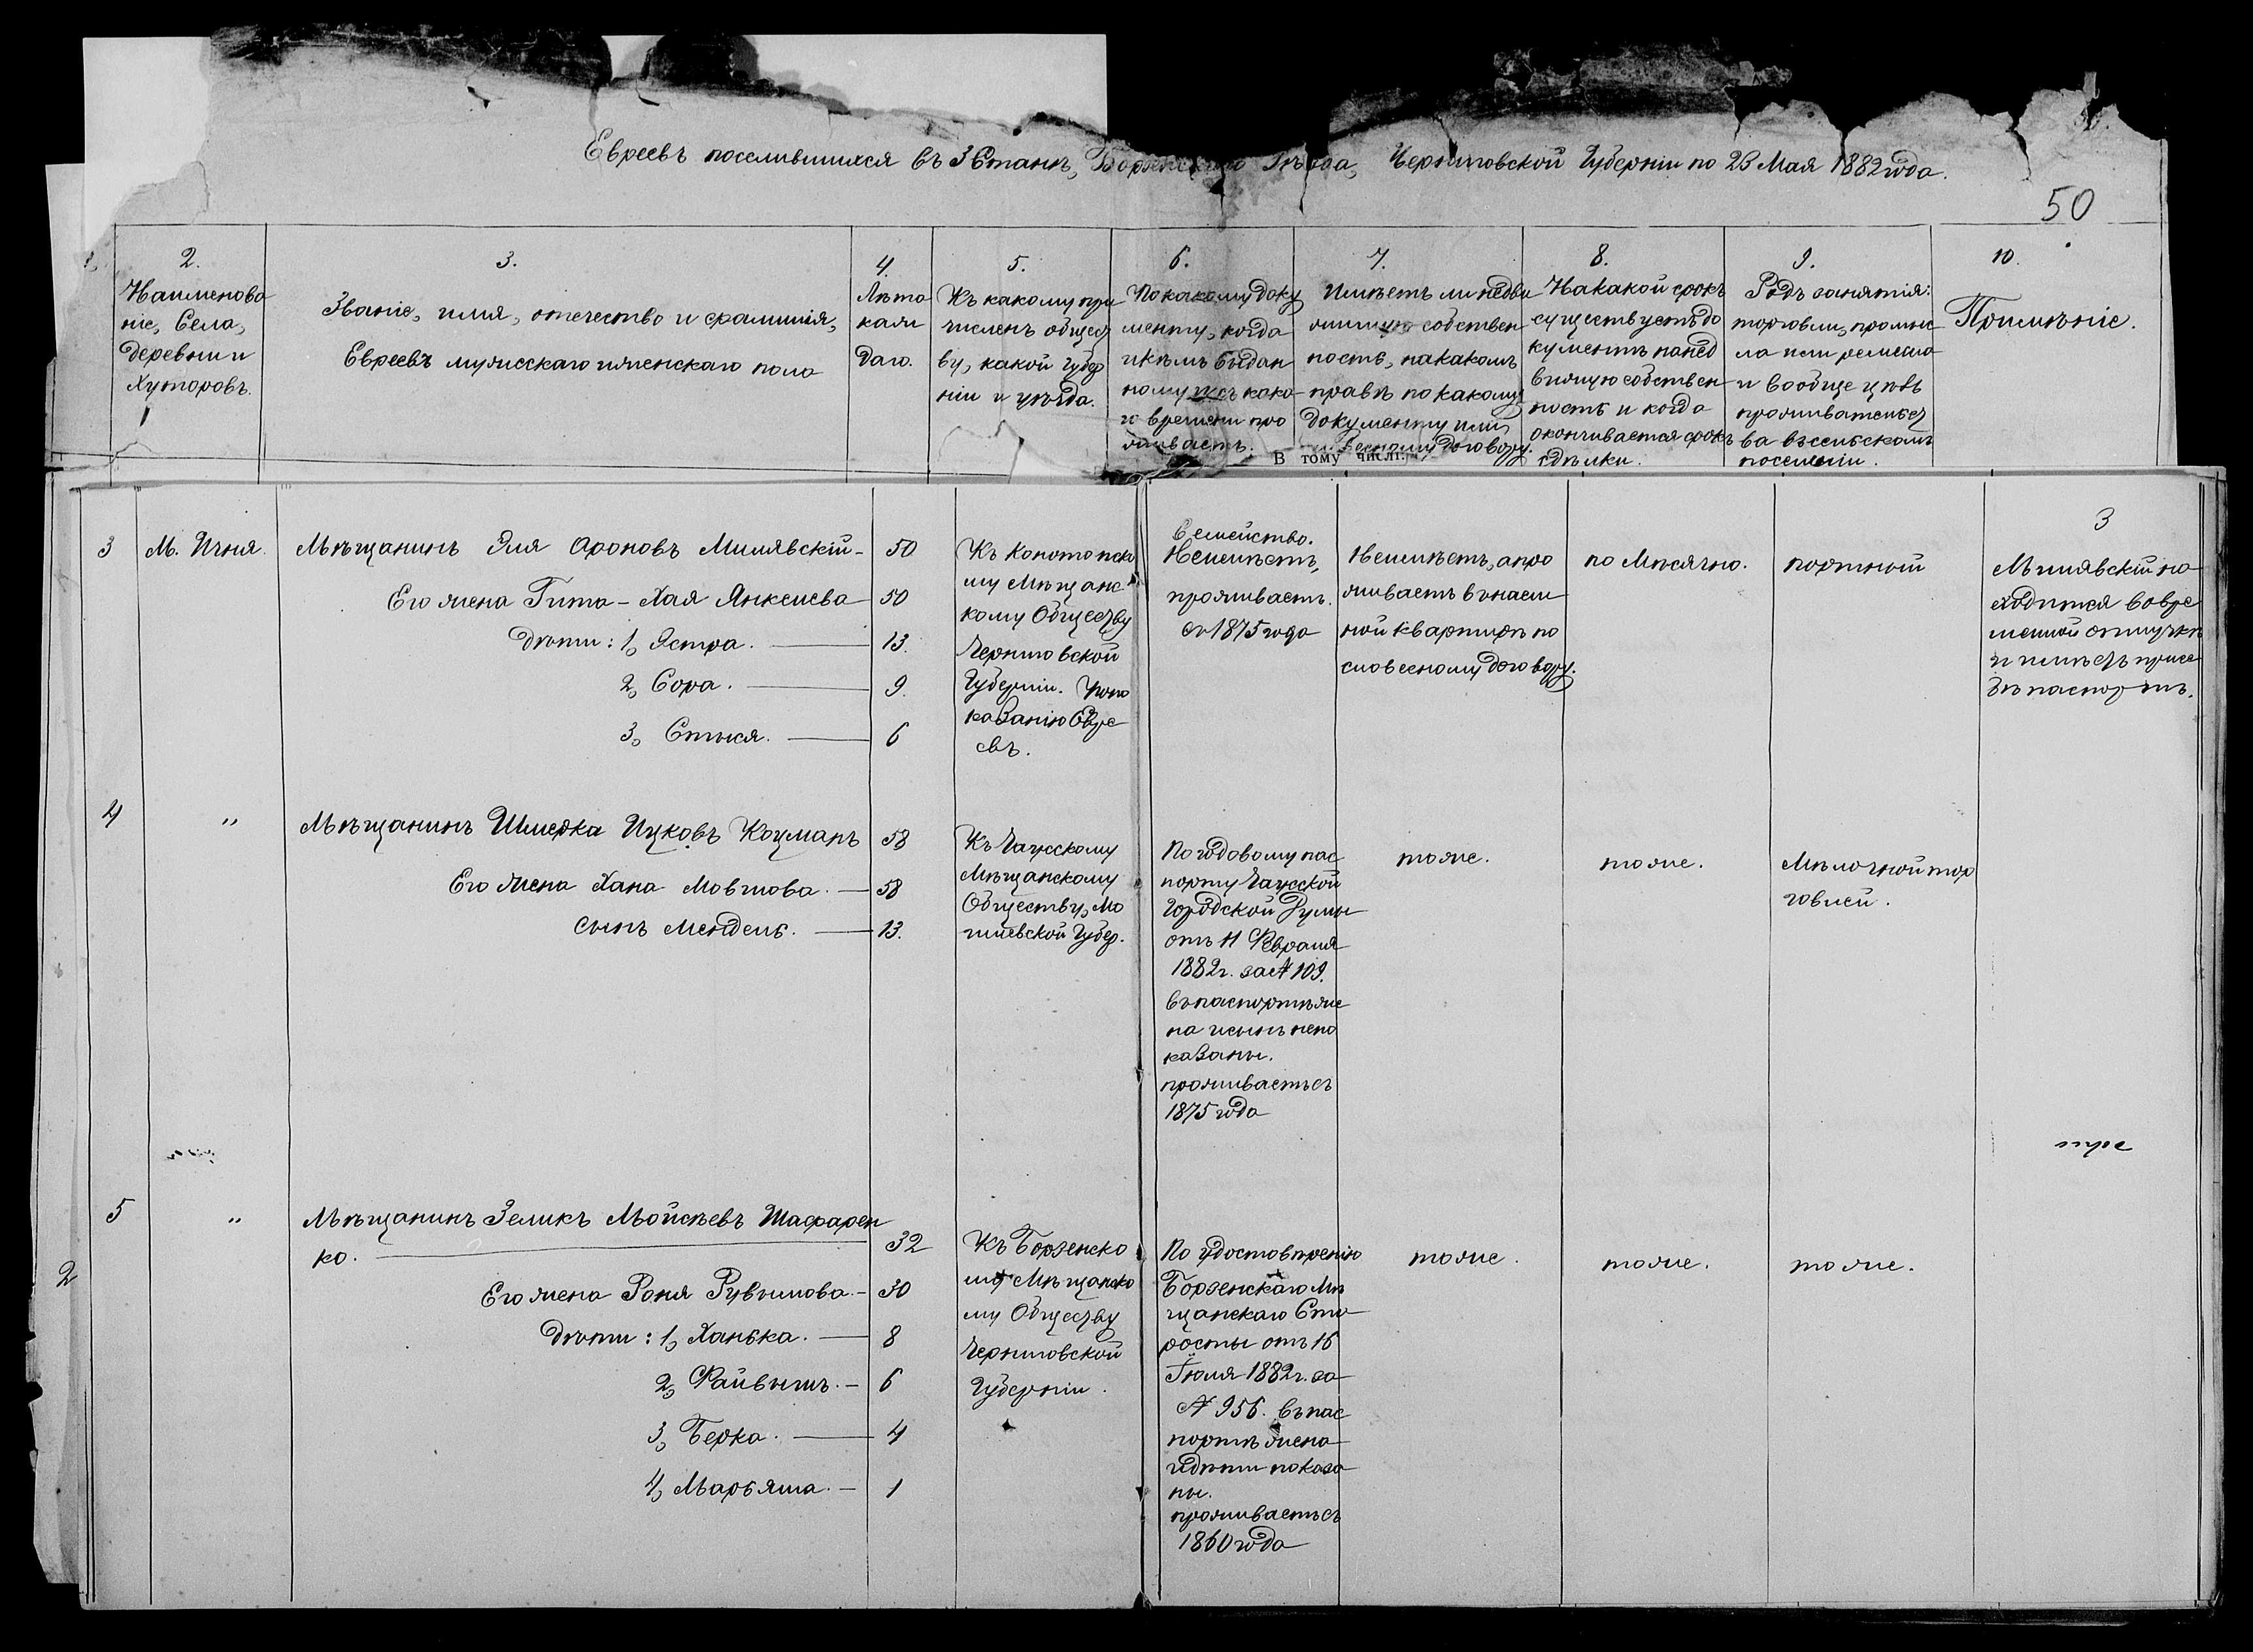 Евреевъ поселившихся въ 3 Станѣ, Борзенскаго Уѣзда, Черниговской Губерніи по 23 Мая 1882 года.
50
2.
Наименова
ніе, Села,
деревни и
Хуторовъ.
3.
Званіе, имя, отечество и фамилія,
Евреевъ мужескаго и женскаго пола
4.
Лѣта
кажд
даго.
5.
Къ какому при
численъ общест
ву, какой губер
ніи и уѣзда.
6.
По какому доку
менту, когда
и кѣмъ выдан
ному и съ како
го времени про
живаетъ.
7.
Имѣетъ ли недви
жимую собствен
ность, на какомъ
правѣ по какому
документу или
словесному договору.
В тому числі:
8.
На какой срокъ
существуетъ до
кументъ на нед
вижимую собствен
ность и когда
оканчивается срокъ
сдѣлки.
9.
Родъ занятія:
торговли, промыс
ла или ремесла
и вообще цѣль
проживательст
ва въ сельскомъ
поселеніи.
10.
Примѣніе.
3
3
М. Ичня.
Мѣщанинъ Эля Ароновъ Милявскій - 50
Его жена Гита - Хая Янкелева 50
Дѣти: 1, Эстра. 13.
2, Сора. 9.
3, Стыся. 6
Къ Конотопско
му Мѣщанс
кому Обществу
Черниговской
Губерніи. По по
казанію Евре
евъ.
Семейство.
Неимѣетъ,
проживаетъ.
съ 1875 года
Неимѣетъ, а про
живаетъ въ наем
ной квартирѣ по
словесному договору.
по Мѣсячно.
портной
Милявскій на
ходится вовре
менной отлучкѣ
и имѣетъ при се
бѣ паспортъ.
4
"
Мѣщанинъ Шмерка Ицковъ Коцманъ 58
Его жена Хана Мовшова. 58
Сынъ Мендель. 13.
Къ Чаусскому
Мѣщанскому
Обществу, Мо
гилевской Губер.
По годовому пас
порту Чаусской
Городской Думы
отъ 11 Февраля
1882 г. за № 109.
въ паспортѣ же
на и сынъ непо
казаны.
проживаетъ съ
1875 года
тоже.
тоже.
Мѣлочной тор
говлей.
5
"
Мѣщанинъ Зеликъ Мойсѣевъ Шафарен
ко. 32
2
Его жена Роня Рувимова. - 30
Дѣти: 1, Ханька. 8
2, Файвышъ. - 6
3, Берка. 4
4, Марьяша. - 1
Къ Борзенско
му Мѣщанско
му Обществу
Черниговской
Губерніи.
По удостовѣренію
Борзенскаго Мѣ
щанскаго Ста
росты отъ 16
Іюля 1882 г. за
№ 956. въ пас
портѣ жена
и дѣти показа
ны.
проживаетъ съ
1860 года
тоже.
тоже.
тоже.